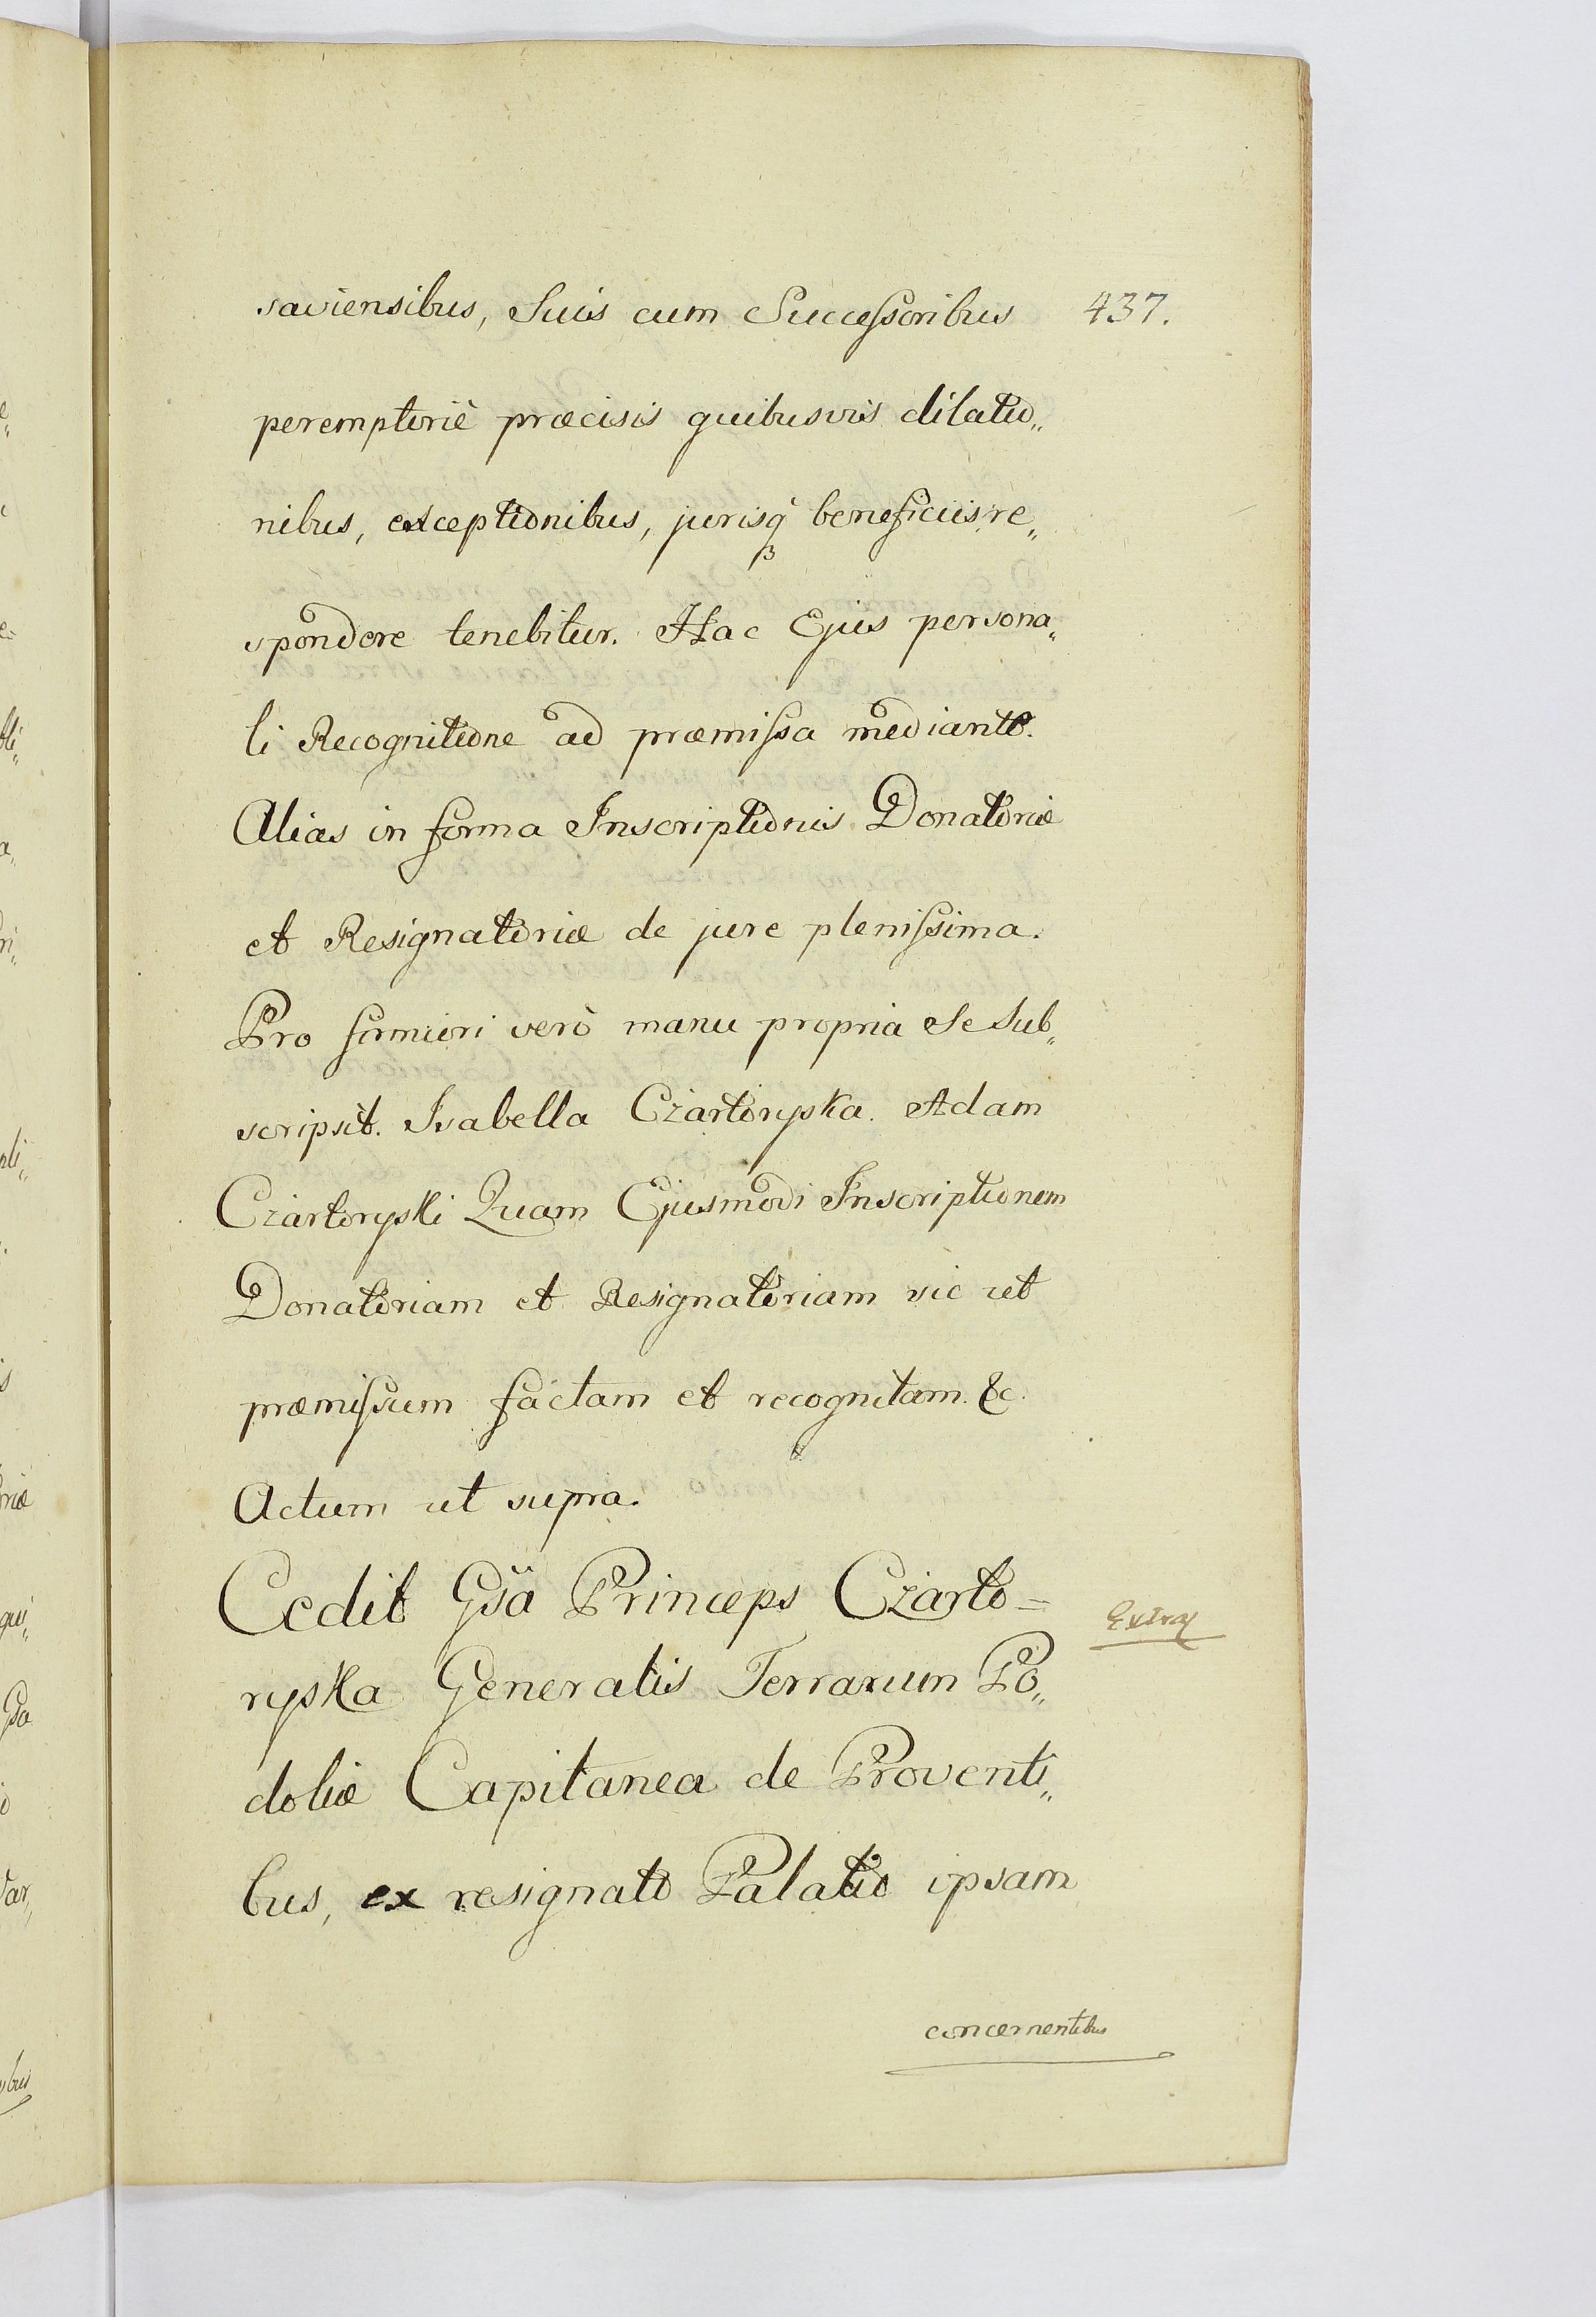 saviensibus, Suis cum Successoribus 437.
peremptoriè præcisis quibusvis dilatio„
nibus, exceptionibus, jurisq̀ʒ beneficiis re„
spondere tenebitur. Hac Ejus persona„
li Recognitione ad præmissa mediante.
Alias in forma Inscriptionis Donatoriæ
et Resignatoriæ de jure plenissima.
Pro firmiori verò manu propria se Sub„
scripsit. Isabella Czartoryska. Adam
Czartoryski Quam Ejusmodi Inscriptionem
Donatoriam et Resignatoriam sic ut
præmissum factam et recognitam &c.
Actum ut supra.
Cedit Gsa Princeps Czarto=
ryska Generalis Terrarum Po„
doliæ Capitanea de Proventi„
bus, ex resignato Palatio ipsam
concernentibus